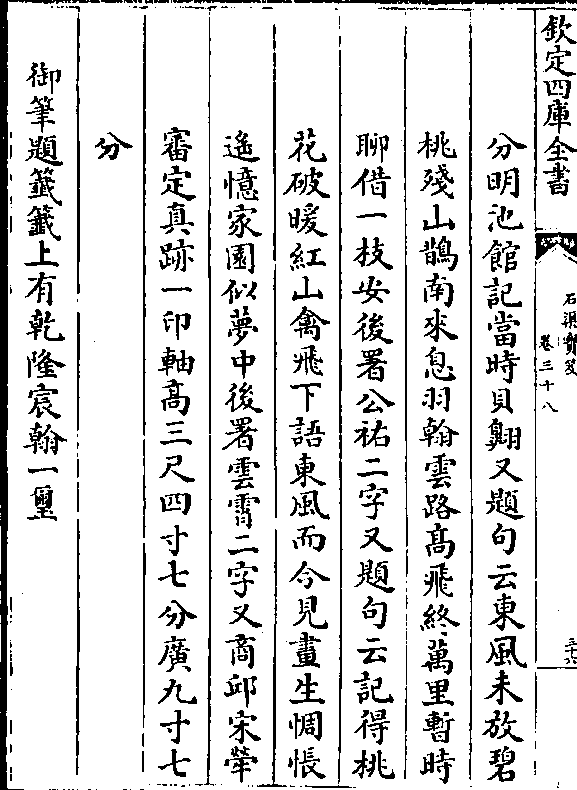 欽定四庫全書
石渠寶笈
卷三十八
三十六
分明池館記當時貝翺又題句云東風未放碧
桃殘山鵲南來息羽翰雲路髙飛終萬里暫時
聊借一枝安後署公祐二字又題句云記得桃
花破暖紅山禽飛下語東風而今見畫生惆悵
遙憶家園似夢中後署雲霄二字又商邱宋犖
審定真跡一印軸髙三尺四寸七分廣九寸七
分
御筆題籤籤上有乾隆宸翰一璽